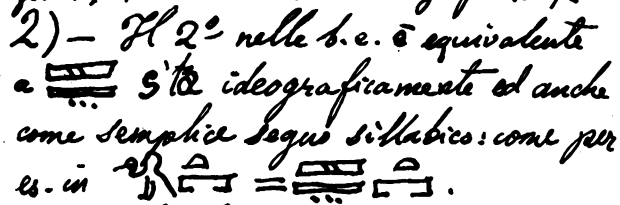 2) — Il 2º nelle b.e. è equivalente
a s'ta ideograficamente ed anche
come semplice segno sillabico: come per
es. in = .